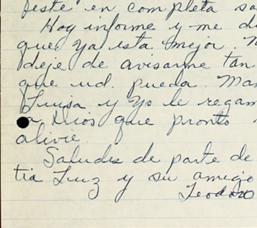 este en completa sa
Hoy informe y me di
que ya esta mejor. N
deje de avisarme tan
que ud. pueda. Mam
Luisa y Yo le rogam
a Dios que pronto s
alivie.
Saludes de parte de
tia Luz y su amigo
Teodoro